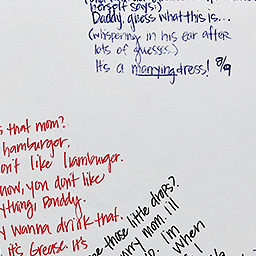 herself says:)
Daddy, guess what this is...
(whispering in his ear after
lots of guesses.)
It's a marrying dress! 8/9
s that mom?
hamburger.
n't like hamburger.
now, you don't like
ything, Daddy.
y wanna drink that.
it's Grease. It's
me those little drops?
rry mom. I'll
I'm
when